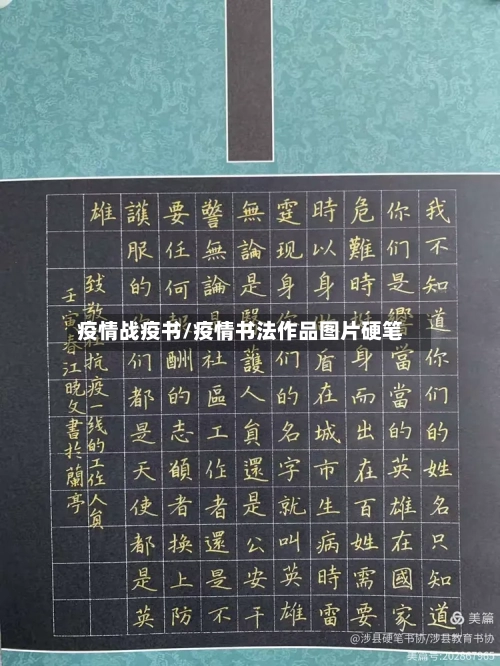 我不知道你们的姓名只知道
你们是響當當的英雄在國家
危難時挺身而出在百姓需要
時以身做盾在城市生病時雷
霆现身你们的名字就叫英雄
無論是醫護人員還是公安干
警無論是社區工作者還是不
要任何報酬的志願者換上防
護服的你们都是天使都是英
雄
致敬在抗疫一线的工作人員
壬寅春江晚文書於蘭亭
疫情战疫书/疫情书法作品图片硬笔
美篇
@涉县硬笔书协/涉县教育书协
美篇号:202667985